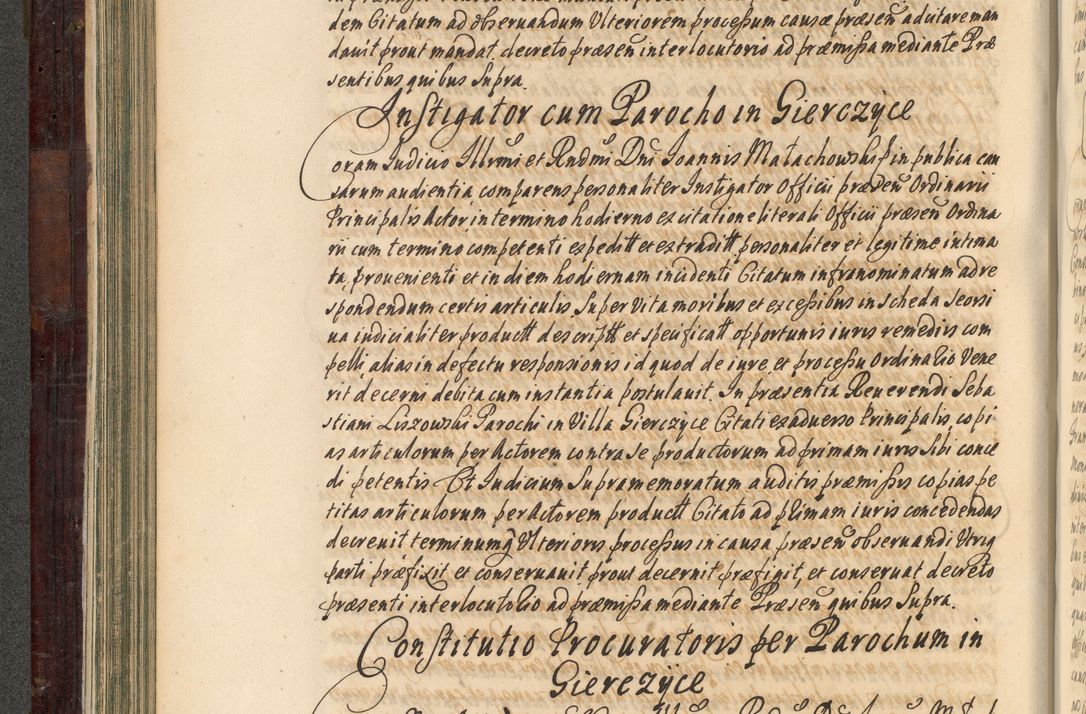 dem Citatum ad observandum Ulteriorem processum causæ præsen̄ adcitare man
davit prout mandat decreto præsen̄ interlocutorio ad præmissa mediante Præ
sentibus quibus Supra.
Instigator cum Parocho in Gierczyce
Coram Iudicio Illrm̄i et Rndm̄i Dn̄i Ioannis Małachowski in publica cau
sarum audientia comparens personaliter Instigator Officii præsen̄ Ordinarii
Principalis Actor, in termino hodierno ex citatione literali Officii præsen̄ Ordina
rii cum termino competenti expeditt et extraditt personaliter et legitime intima
ta, provenienti et in diem hodiernam incidenti Citatum infranominatum ad re
spondendum certis articulis Super Vita moribus et excessibus in scheda seorsi
va iudicialiter productt descriptt et specificatt opportunis iuris remediis com
pelli alias in defectu responsionis id quod de iure et processu Ordinatio Vene
rit decerni debita cum instantia postulavit. In præsentia Reverendi Seba
stiani Liszowski Parochi in Villa Gierczyce Citati ex adverso Principalis, copi
as articulorum per Actorem contra se productorum ad primam iuris Sibi conce
di petentis Et Iudicium Supramemoratum auditis præmissis copias pe
titas articulorum per Actorem productt Citato ad primam iuris concedendas
decrevit terminumq́ Ulterioris processus in causa præsen̄ observandi Utriq
parti præfixit et conservavit prout decernit, præfigit, et conservat decreto
præsenti interlocutorio ad præmissa mediante Præsen̄ quibus Supra.
Constitutio Procuratoris per Parochum in
Gierczyce